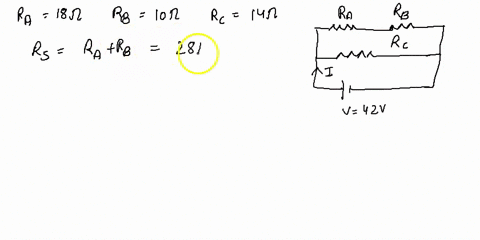 R_A = 18Ω R_B = 10Ω R_C = 14Ω
R_S = R_A + R_B = 28
R_A R_B
R_C
I
V = 42V